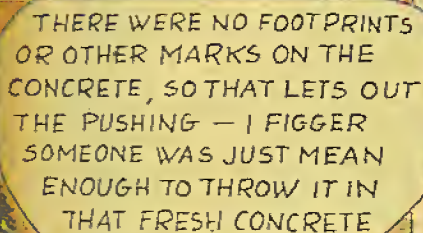 THERE WERE NO FOOTPRINTS
OR OTHER MARKS ON THE
CONCRETE, SO THAT LETS OUT
THE PUSHING — I FIGGER
SOMEONE WAS JUST MEAN
ENOUGH TO THROW IT IN
THAT FRESH CONCRETE